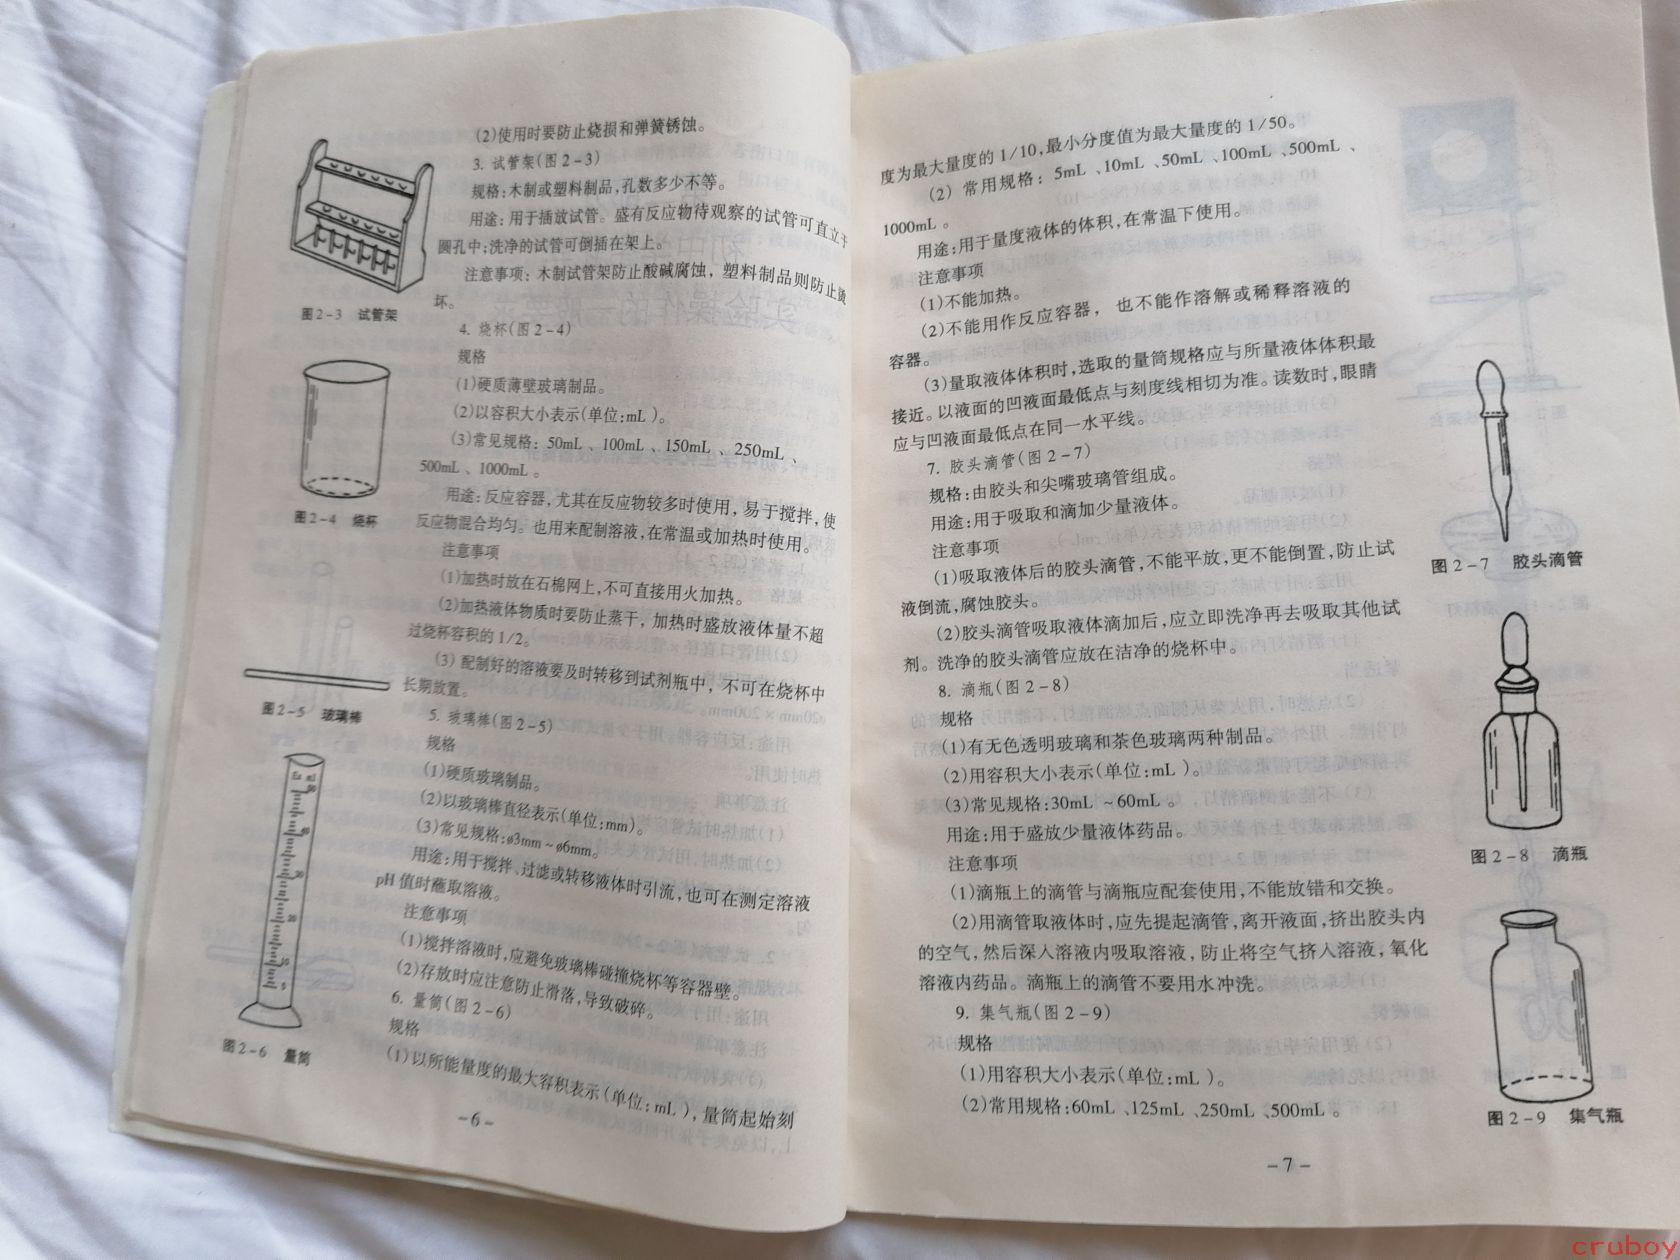 (2)使用时要防止烧损和弹簧锈蚀。
3. 试管架(图2-3)
规格:木制或塑料制品,孔数多少不等。
用途:用于插放试管。盛有反应物待观察的试管可直立于
圆孔中;洗净的试管可倒插在架上。
注意事项:木制试管架防止酸碱腐蚀,塑料制品则防止烫
坏。
图2-3 试管架
4. 烧杯(图2-4)
规格
(1)硬质薄壁玻璃制品。
(2)以容积大小表示(单位:mL)。
(3)常见规格:50mL、100mL、150mL、250mL、
500mL、1000mL。
用途:反应容器,尤其在反应物较多时使用,易于搅拌,使
反应物混合均匀。也用来配制溶液,在常温或加热时使用。
图2-4 烧杯
注意事项
(1)加热时放在石棉网上,不可直接用火加热。
(2)加热液体物质时要防止蒸干,加热时盛放液体量不超
过烧杯容积的1/2。
(3)配制好的溶液要及时转移到试剂瓶中,不可在烧杯中
长期放置。
图2-5 玻璃棒
5. 玻璃棒(图2-5)
规格
(1)硬质玻璃制品。
(2)以玻璃棒直径表示(单位:mm)。
(3)常见规格:ø3mm~ø6mm。
用途:用于搅拌、过滤或转移液体时引流,也可在测定溶液
pH值时蘸取溶液。
注意事项
(1)搅拌溶液时,应避免玻璃棒碰撞烧杯等容器壁。
(2)存放时应注意防止滑落,导致破碎。
6. 量筒(图2-6)
规格
(1)以所能量度的最大容积表示(单位:mL),量筒起始刻
图2-6 量筒
-6-
度为最大量度的1/10,最小分度值为最大量度的1/50。
(2)常用规格:5mL、10mL、50mL、100mL、500mL、
1000mL。
用途:用于量度液体的体积,在常温下使用。
注意事项
(1)不能加热。
(2)不能用作反应容器,也不能作溶解或稀释溶液的
容器。
(3)量取液体体积时,选取的量筒规格应与所量液体体积最
接近。以液面的凹液面最低点与刻度线相切为准。读数时,眼睛
应与凹液面最低点在同一水平线。
7. 胶头滴管(图2-7)
规格:由胶头和尖嘴玻璃管组成。
用途:用于吸取和滴加少量液体。
注意事项
(1)吸取液体后的胶头滴管,不能平放,更不能倒置,防止试
液倒流,腐蚀胶头。
图2-7 胶头滴管
(2)胶头滴管吸取液体滴加后,应立即洗净再去吸取其他试
剂。洗净的胶头滴管应放在洁净的烧杯中。
8. 滴瓶(图2-8)
规格
(1)有无色透明玻璃和茶色玻璃两种制品。
(2)用容积大小表示(单位:mL)。
(3)常见规格:30mL~60mL。
用途:用于盛放少量液体药品。
图2-8 滴瓶
注意事项
(1)滴瓶上的滴管与滴瓶应配套使用,不能放错和交换。
(2)用滴管取液体时,应先提起滴管,离开液面,挤出胶头内
的空气,然后深入溶液内吸取溶液,防止将空气挤入溶液,氧化
溶液内药品。滴瓶上的滴管不要用水冲洗。
9. 集气瓶(图2-9)
规格
(1)用容积大小表示(单位:mL)。
(2)常用规格:60mL、125mL、250mL、500mL。
图2-9 集气瓶
-7-
cruboy